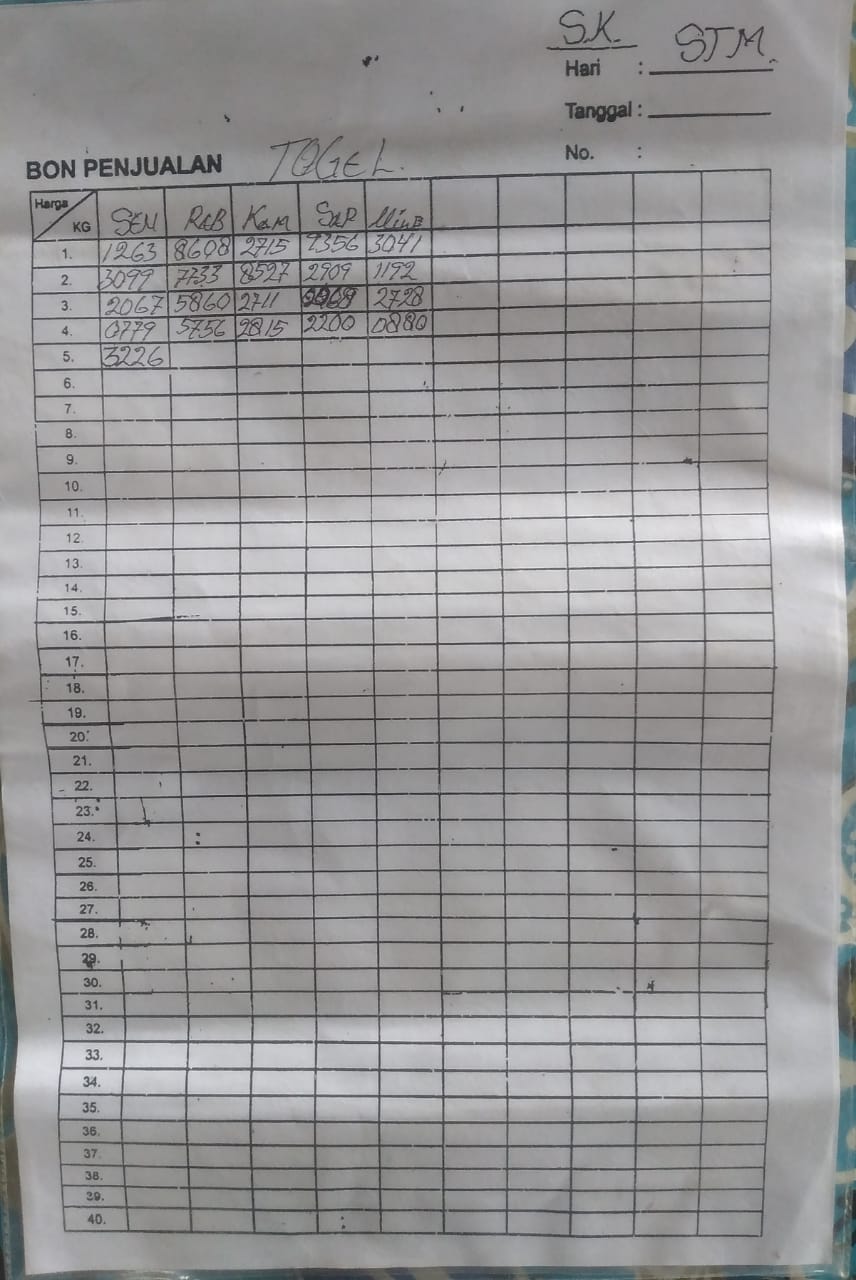 S.K.
Hari : STM
Tanggal :
No. :
BON PENJUALAN TOGEL
Harga
KG SEN RAB KAM SAP MiNB
1. 1263 8608 2715 9356 3041
2. 3099 7733 8527 2909 1192
3. 2067 5860 2711 2728
4. 0779 5756 2815 2200 0880
5. 3226
6.
7.
8.
9.
10.
11.
12.
13.
14.
15.
16.
17.
18.
19.
20.
21.
22.
23.
24.
25.
26.
27.
28.
29.
30.
31.
32.
33.
34.
35.
36.
37.
38.
39.
40.